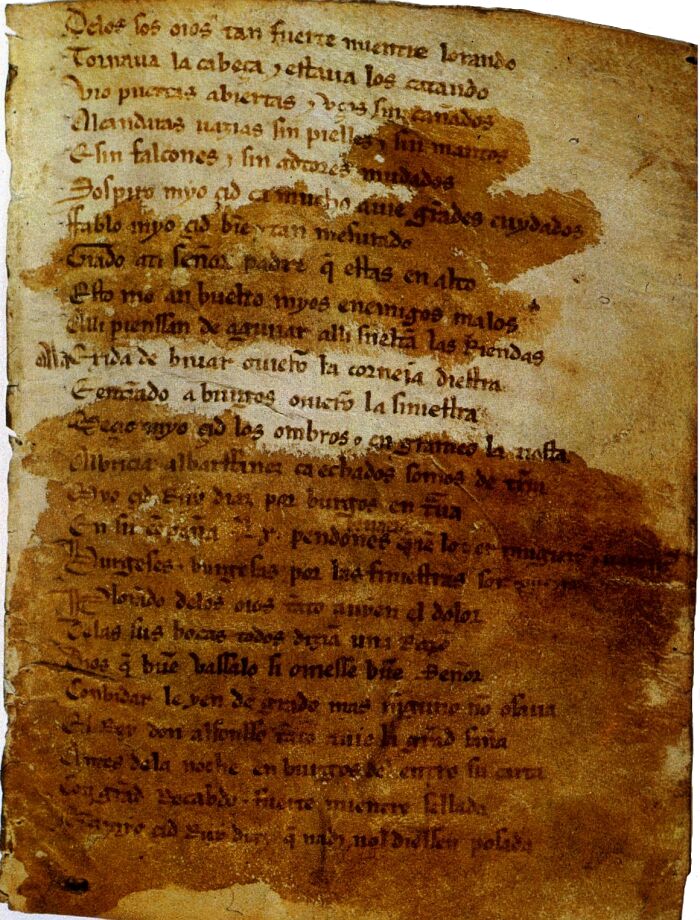 Delos sos oios tan fuerte mientre lorando
Tornaua la cabeça ⁊ estaua los catando
Vio puertas abiertas ⁊ vços sin cañados
Alcandaras uazias sin pielles ⁊ sin mantos
E sin falcones ⁊ sin adtores mudados
Sospiro myo çid ca mucho auie grãdes cuydados
Ffablo myo çid biẽ ⁊ tan mesurado
Grado ati señor padre q̃ estas en alto
Esto me an buelto myos enemigos malos
Alli pienssan de aguiiar alli sueltã las Riendas
Ala Exida de biuar ouierõ la corneja diestra
E entrãdo a burgos ouierõ la siniestra
Meçio myo çid los ombros ⁊ en grameo la tiesta
Albricia albarffanez ca echados somos de trr̃a
Myo çid Ruy diaz por burgos en traua
En su cõpaña Lx pendones
Burgeses ⁊ burgesas por las finiestras son
Plorãdo delos oios tãto auyen el dolor
Delas sus bocas todos dizian una Razõ
Dios q̃ buẽ vassalo si ouiesse buẽ Señor
Conbidar le yen de grado mas ninguno nõ osaua
El Rey don alfonsso tãto auie la grãd saña
Antes dela noche en burgos del entro su carta
Con grãd Recabdo ⁊ fuerte mientre sellada
Q̃ a myo çid Ruy diaz q̃ nadi nol diessen posada